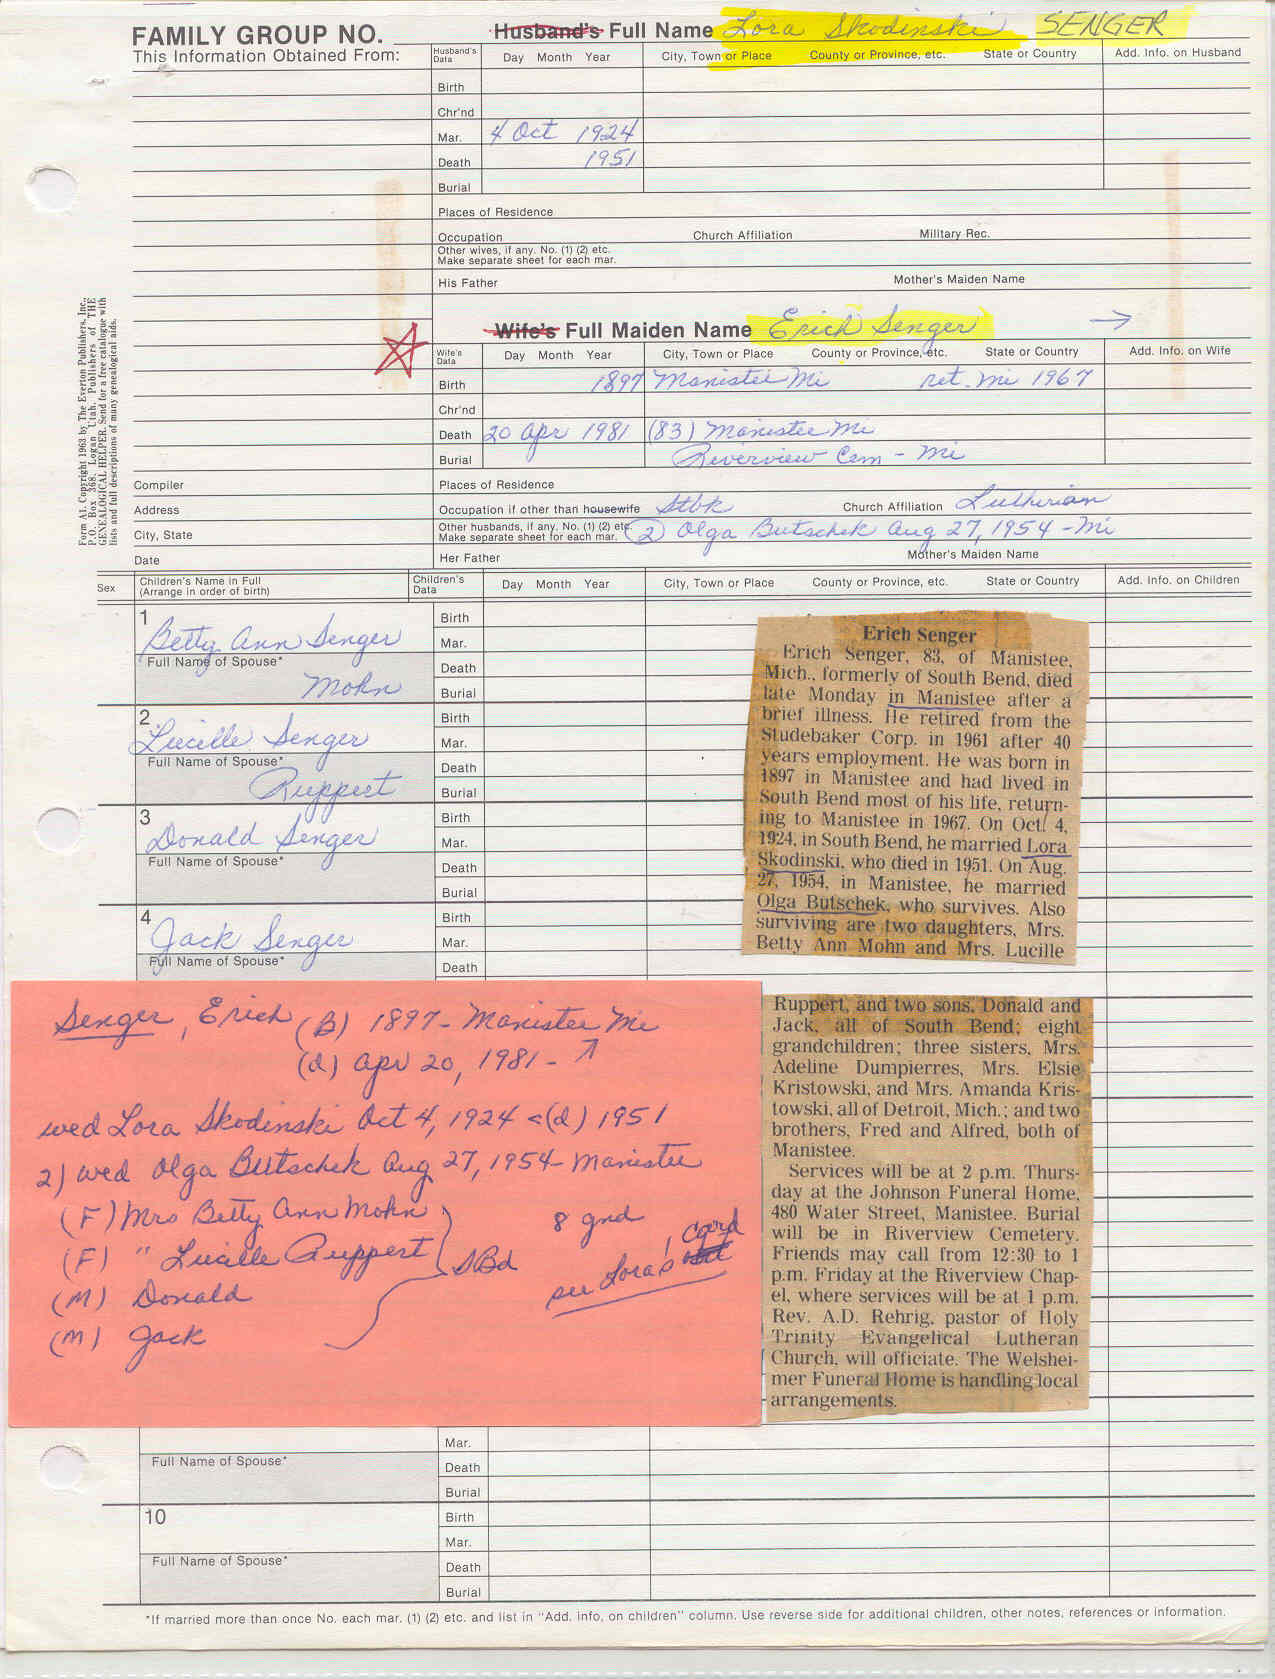 FAMILY GROUP NO.
This Information Obtained From:
Husband's Full Name Lora Skodinski SENGER
Husband's Data Day Month Year City, Town or Place County or Province, etc. State or Country Add. Info. on Husband
Birth
Chr'nd
Mar. 4 Oct 1924
Death 1951
Burial
Places of Residence
Occupation Church Affiliation Military Rec.
Other wives, if any. No. (1) (2) etc.
Make separate sheet for each mar.
His Father Mother's Maiden Name
Wife's Full Maiden Name Erich Senger →
Wife's Data Day Month Year City, Town or Place County or Province, etc. State or Country Add. Info. on Wife
Birth 1897 Manistee Mi ret. Mi 1967
Chr'nd
Death 20 Apr 1981 (83) Manistee Mi
Burial Riverview Cem - Mi
Compiler Places of Residence
Address Occupation if other than housewife Stbk Church Affiliation Lutherian
City, State Other husbands, if any. No. (1) (2) etc.
Make separate sheet for each mar. (2) Olga Butschek Aug 27, 1954 - Mi
Date Her Father Mother's Maiden Name
Form A1. Copyright 1963 by The Everton Publishers, Inc.,
P.O. Box 368, Logan Utah. Publishers of THE
GENEALOGICAL HELPER. Send for a free catalogue with
lists and full descriptions of many genealogical aids.
Sex Children's Name in Full
(Arrange in order of birth) Children's Data Day Month Year City, Town or Place County or Province, etc. State or Country Add. Info. on Children
1 Birth
Betty Ann Senger Mar.
Full Name of Spouse* Death
Mohn Burial
2 Birth
Lucille Senger Mar.
Full Name of Spouse* Death
Ruppert Burial
3 Birth
Donald Senger Mar.
Full Name of Spouse* Death
Burial
4 Birth
Jack Senger Mar.
Full Name of Spouse* Death
Erich Senger
Erich Senger, 83, of Manistee,
Mich., formerly of South Bend, died
late Monday in Manistee after a
brief illness. He retired from the
Studebaker Corp. in 1961 after 40
years employment. He was born in
1897 in Manistee and had lived in
South Bend most of his life, return-
ing to Manistee in 1967. On Oct. 4,
1924, in South Bend, he married Lora
Skodinski, who died in 1951. On Aug.
27, 1954, in Manistee, he married
Olga Butschek, who survives. Also
surviving are two daughters, Mrs.
Betty Ann Mohn and Mrs. Lucille
Ruppert, and two sons, Donald and
Jack, all of South Bend; eight
grandchildren; three sisters, Mrs.
Adeline Dumpierres, Mrs. Elsie
Kristowski, and Mrs. Amanda Kris-
towski, all of Detroit, Mich.; and two
brothers, Fred and Alfred, both of
Manistee.
Services will be at 2 p.m. Thurs-
day at the Johnson Funeral Home,
480 Water Street, Manistee. Burial
will be in Riverview Cemetery.
Friends may call from 12:30 to 1
p.m. Friday at the Riverview Chap-
el, where services will be at 1 p.m.
Rev. A.D. Rehrig, pastor of Holy
Trinity Evangelical Lutheran
Church, will officiate. The Welshei-
mer Funeral Home is handling local
arrangements.
Senger, Erich (B) 1897 - Manistee Mi
(d) Apr 20, 1981 - ↑
wed Lora Skodinski Oct 4, 1924 <(d) 1951
2) wed Olga Butschek Aug 27, 1954 - Manistee
(F) Mrs Betty Ann Mohn
(F) " Lucille Ruppert
(M) Donald
(M) Jack
SBd
8 gnd
see Lora's card
Mar.
Full Name of Spouse* Death
Burial
10 Birth
Mar.
Full Name of Spouse* Death
Burial
*If married more than once No. each mar. (1) (2) etc. and list in "Add. info, on children" column. Use reverse side for additional children, other notes, references or information.